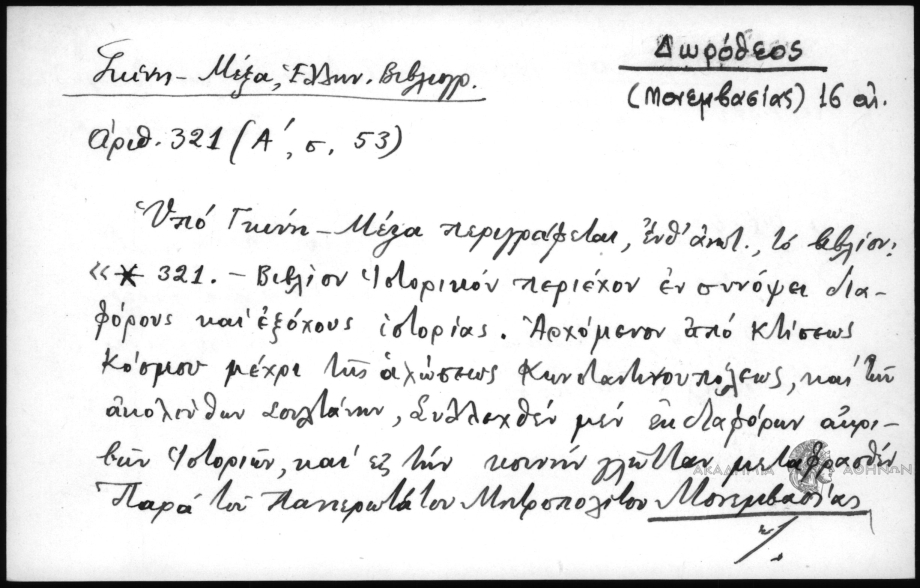 Δωρόθεος
(Μονεμβασίας) 16 αἰ.
Γκίνη - Μέξα, Ἑλλην. Βιβλιογρ.
ἀριθ. 321 (Α΄, σ. 53)
Ὑπό Γκίνη - Μέξα περιγράφεται, ἔνθ' ἀνωτ., τό βιβλίον:
«* 321. - Βιβλίον Ἱστορικόν περιέχον ἐν συνόψει δια-
φόρους καί ἐξόχους ἱστορίας. Ἀρχόμενον ἀπό κτίσεως
Κόσμου μέχρι τῆς ἁλώσεως Κωνσταντινουπόλεως, καί τῶν
ἀκολούθων Σουλτάνων, Συλλεχθέν μέν ἐκ διαφόρων ἀκρι-
βῶν Ἱστοριῶν, καί εἰς τήν κοινήν γλῶτταν μεταφρασθέν
Παρά τοῦ Πανιερωτάτου Μητροπολίτου Μονεμβασίας
ΑΚΑΔΗΜΙΑ ΑΘΗΝΩΝ